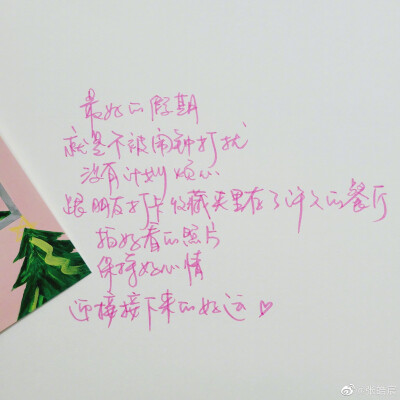 最好的假期
就是不被闹钟打扰
没有计划烦心
跟朋友打卡收藏夹里存了许久的餐厅
拍好看的照片
保持好心情
迎接接下来的好运♡